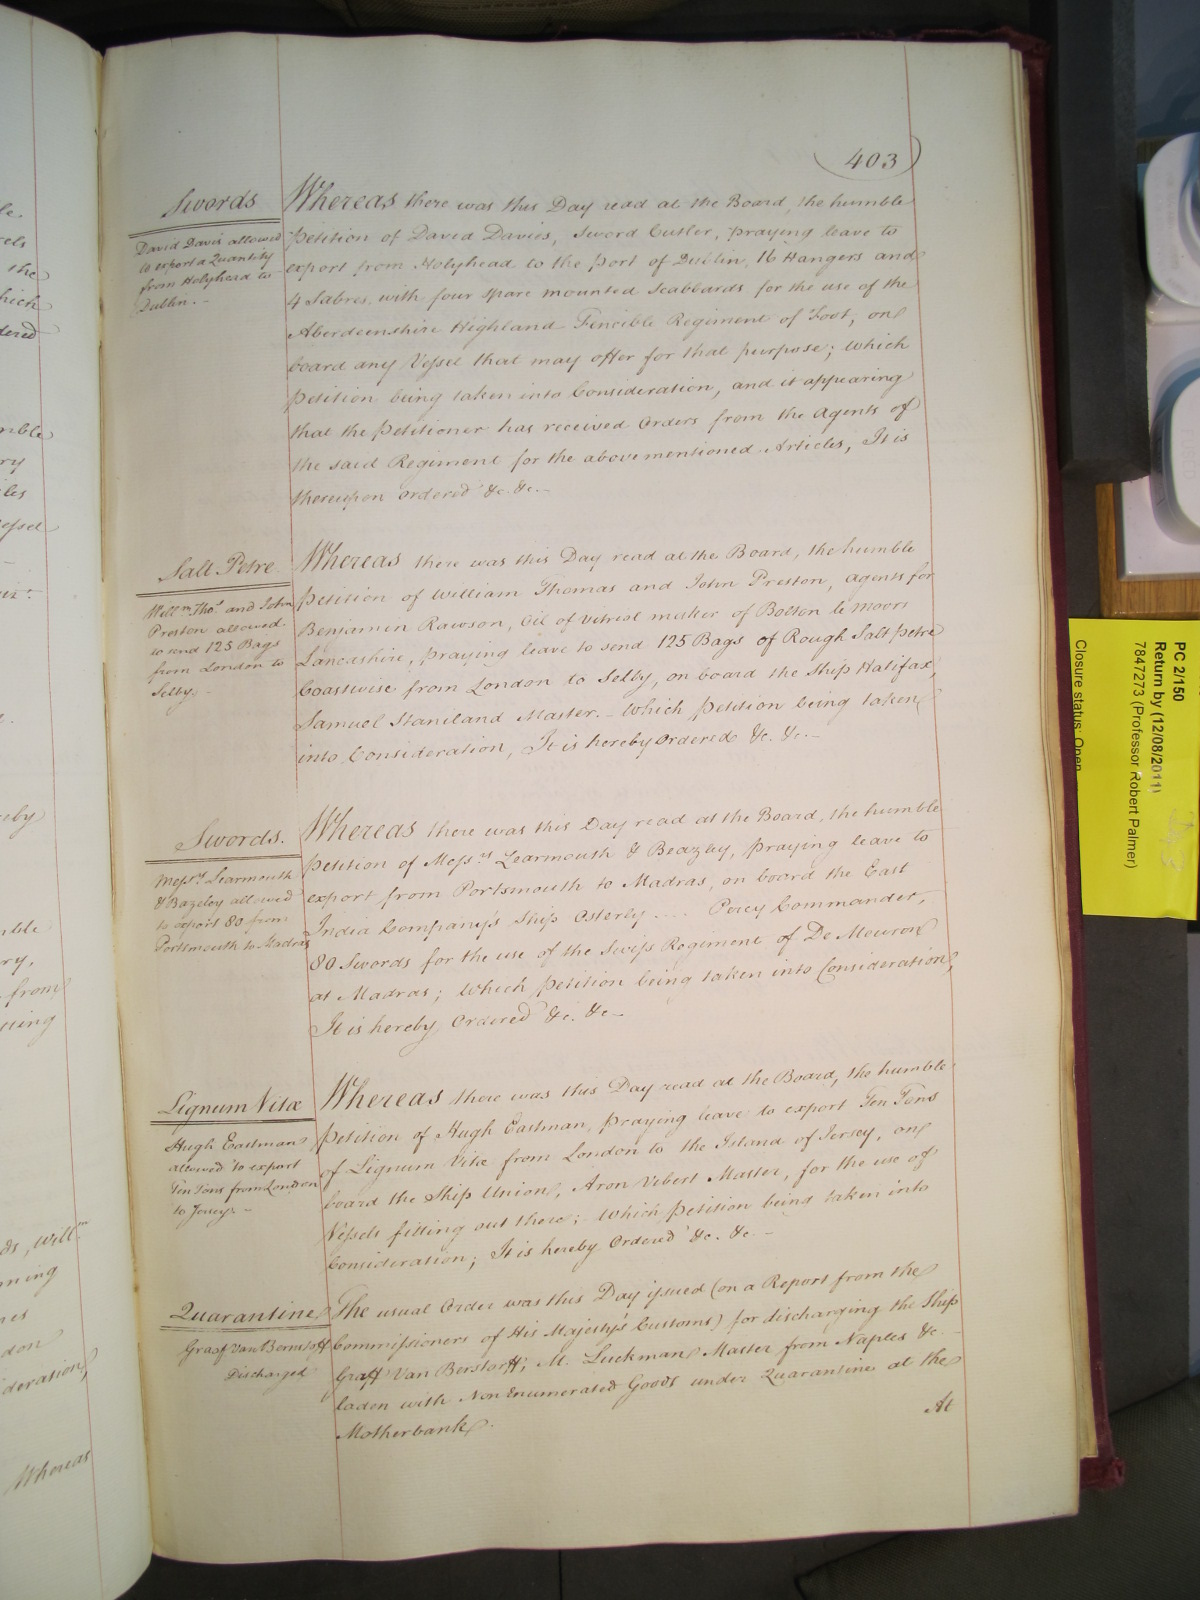 403
Swords
David Davis allowed
to export a Quantity
from Holyhead to
Dublin.-
Whereas there was this Day read at the Board, the humble
Petition of David Davies, Sword Cutler, praying leave to
export from Holyhead to the Port of Dublin, 16 Hangers and
4 Sabres, with four spare mounted Scabbards for the use of the
Aberdeenshire Highland Fencible Regiment of Foot, on
board any Vessel that may offer for that purpose; Which
Petition being taken into Consideration, and it appearing
that the Petitioner has received Orders from the Agents of
the said Regiment for the abovementioned Articles, It is
thereupon Ordered &c. &c.-
Salt Petre
Willm. Thos. and John
Preston allowed
to send 125 Bags
from London to
Selby.-
Whereas there was this Day read at the Board, the humble
Petition of William Thomas and John Preston, Agents for
Benjamin Rawson, Oil of Vitriol maker of Bolton le Moors
Lancashire, praying leave to send 125 Bags of Rough Salt petre
Coastwise from London to Selby, on board the Ship Halifax,
Samuel Staniland Master.- Which Petition being taken
into Consideration, It is hereby Ordered &c. &c.-
Swords.
Messrs. Learmouth
& Bazeley allowed
to export 80 from
Portsmouth to Madras
Whereas there was this Day read at the Board, the humble
Petition of Messrs. Learmouth & Beazley, praying leave to
export from Portsmouth to Madras, on board the East
India Company's Ship Osterly .... Percy Commander,
80 Swords for the use of the Swiss Regiment of De Meuron
at Madras; Which Petition being taken into Consideration,
It is hereby Ordered &c. &c-
Lignum Vitæ
Hugh Eastman
allowed to export
Ten Tons from London
to Jersey.-
Whereas there was this Day read at the Board, the humble
Petition of Hugh Eastman, praying leave to export Ten Tons
of Lignum Vitæ from London to the Island of Jersey, on
board the Ship Union, Aron Vibert Master, for the use of
Vessels fitting out there; Which Petition being taken into
Consideration; It is hereby Ordered &c. &c.-
Quarantine
Graff Van Bernstoff
Discharged
The usual Order was this Day issued (on a Report from the
Commissioners of His Majesty's Customs) for discharging the Ship
Graff Van Berstorff, M. Luckman Master from Naples &c.
laden with Non Enumerated Goods under Quarantine at the
Motherbank.
At
Whereas
PC 2/150
Return by (12/08/2011)
7847273 (Professor Robert Palmer)
Closure status: Open